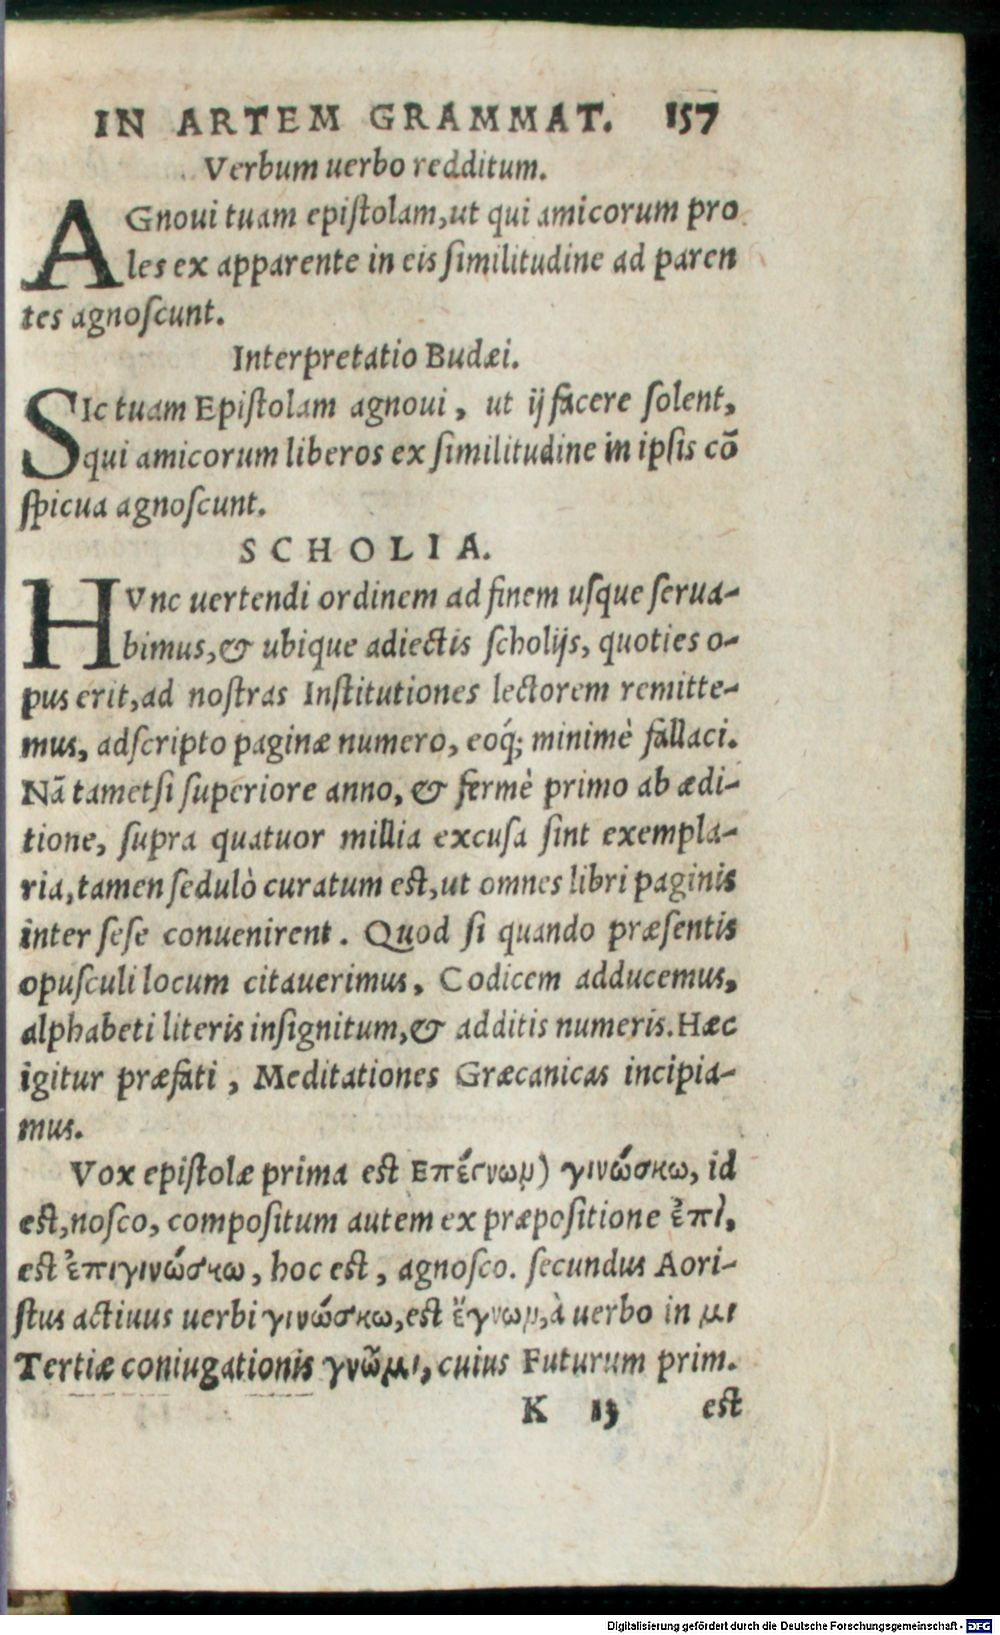 IN ARTEM GRAMMAT. 157
Verbum uerbo redditum.
AGnoui tuam epiſtolam, ut qui amicorum pro
les ex apparente in eis ſimilitudine ad paren
tes agnoſcunt.
Interpretatio Budæi.
SIc tuam Epiſtolam agnoui, ut ij facere ſolent,
qui amicorum liberos ex ſimilitudine in ipſis cō
ſpicua agnoſcunt.
SCHOLIA.
HVnc uertendi ordinem ad finem uſque ſerua-
bimus, & ubique adiectis ſcholijs, quoties o-
pus erit, ad noſtras Inſtitutiones lectorem remitte-
mus, adſcripto paginæ numero, eoq́; minimè fallaci.
Nā tametſi ſuperiore anno, & fermè primo ab ædi-
tione, ſupra quatuor millia excuſa ſint exempla-
ria, tamen ſedulò curatum eſt, ut omnes libri paginis
inter ſeſe conuenirent. Quod ſi quando præſentis
opuſculi locum citauerimus, Codicem adducemus,
alphabeti literis inſignitum, & additis numeris. Hæc
igitur præfati, Meditationes Græcanicas incipia-
mus.
Vox epiſtolæ prima eſt Επέγνων) γινώσκω, id
eſt, noſco, compoſitum autem ex præpoſitione ἐπὶ,
eſt ἐπιγινώσκω, hoc eſt, agnoſco. ſecundus Aori-
ſtus actiuus uerbi γινώσκω, eſt ἔγνων, à uerbo in μι
Tertiæ coniugationis γνῶμι, cuius Futurum prim.
K 13 eſt
Digitalisierung gefördert durch die Deutsche Forschungsgemeinschaft - DFG